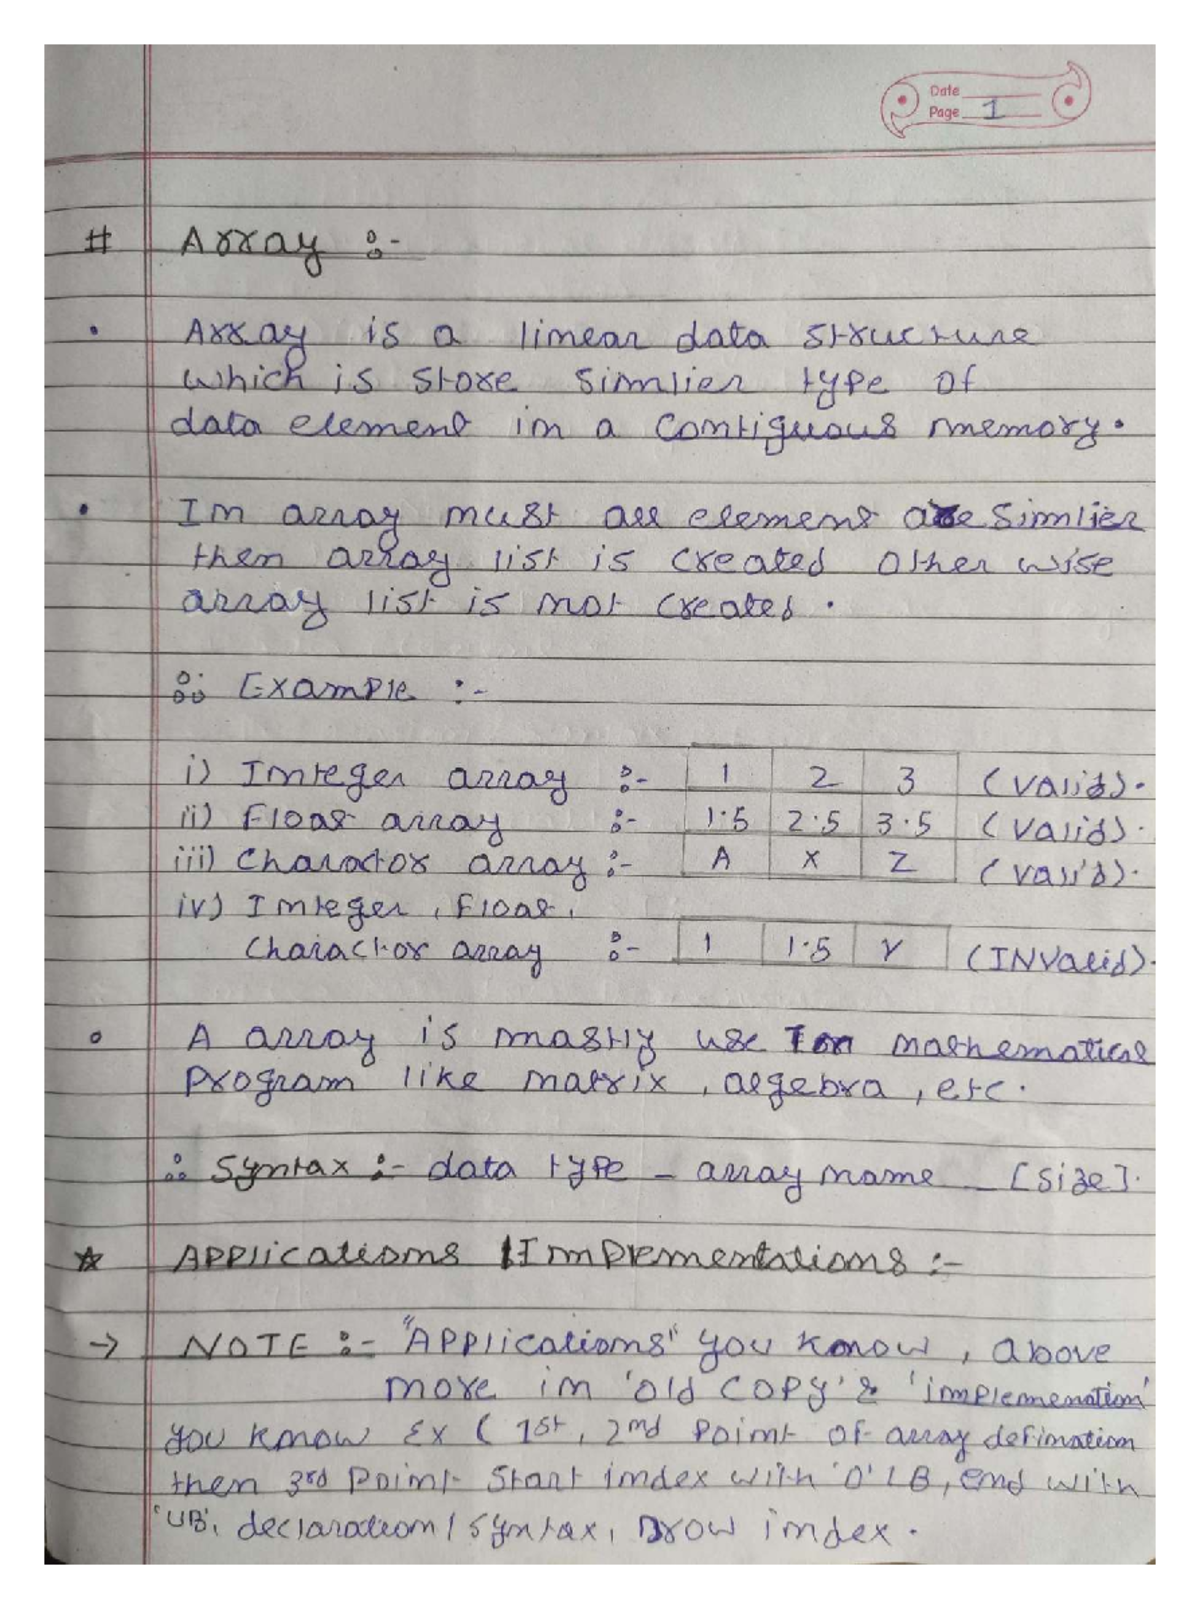 Date
Page 1
# Array :-
• Array is a linear data structure
which is store simlier type of
data element in a contiguous memory.
• In array must all element are Simlier
then array list is created other wise
array list is not created.
Example :-
i) Integer array :- 1 2 3 (valid).
ii) Float array :- 1.5 2.5 3.5 (valid).
iii) Charactor array :- A X Z (valid).
iv) Integer, Float,
Charactor array :- 1 1.5 Y (INValid).
∘ A array is mastly use For mathematical
Program like matrix, algebra, etc.
∴ Syntax :- data type - array name - [size].
☆ Applications / Implementations :-
→ NOTE :- "Applications" you know, above
more in 'old copy' & 'implemenation'
you know Ex ( 1st, 2nd Point of array defination
then 3rd Point Start index with '0' LB, end with
'UB', declaration / syntax, Drow index.